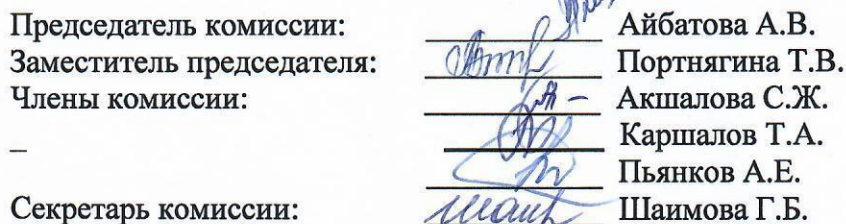 Председатель комиссии: Айбатова А.В.
Заместитель председателя: Портнягина Т.В.
Члены комиссии: Акшалова С.Ж.
– Каршалов Т.А.
Пьянков А.Е.
Секретарь комиссии: Шаимова Г.Б.